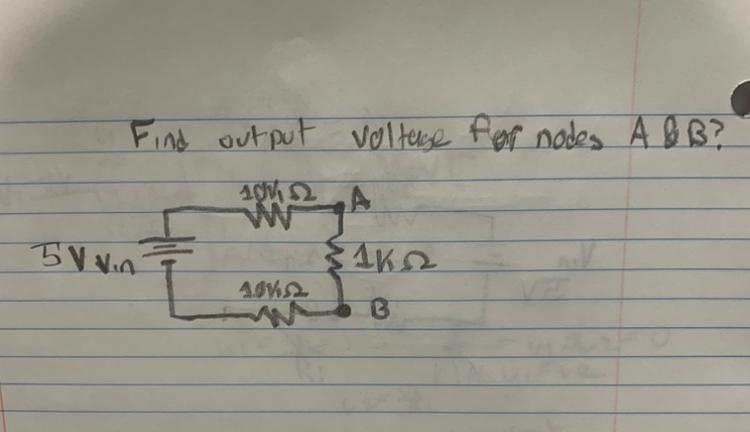 Find output voltage for nodes A & B?
10KΩ A
5V Vin 1KΩ
10KΩ B